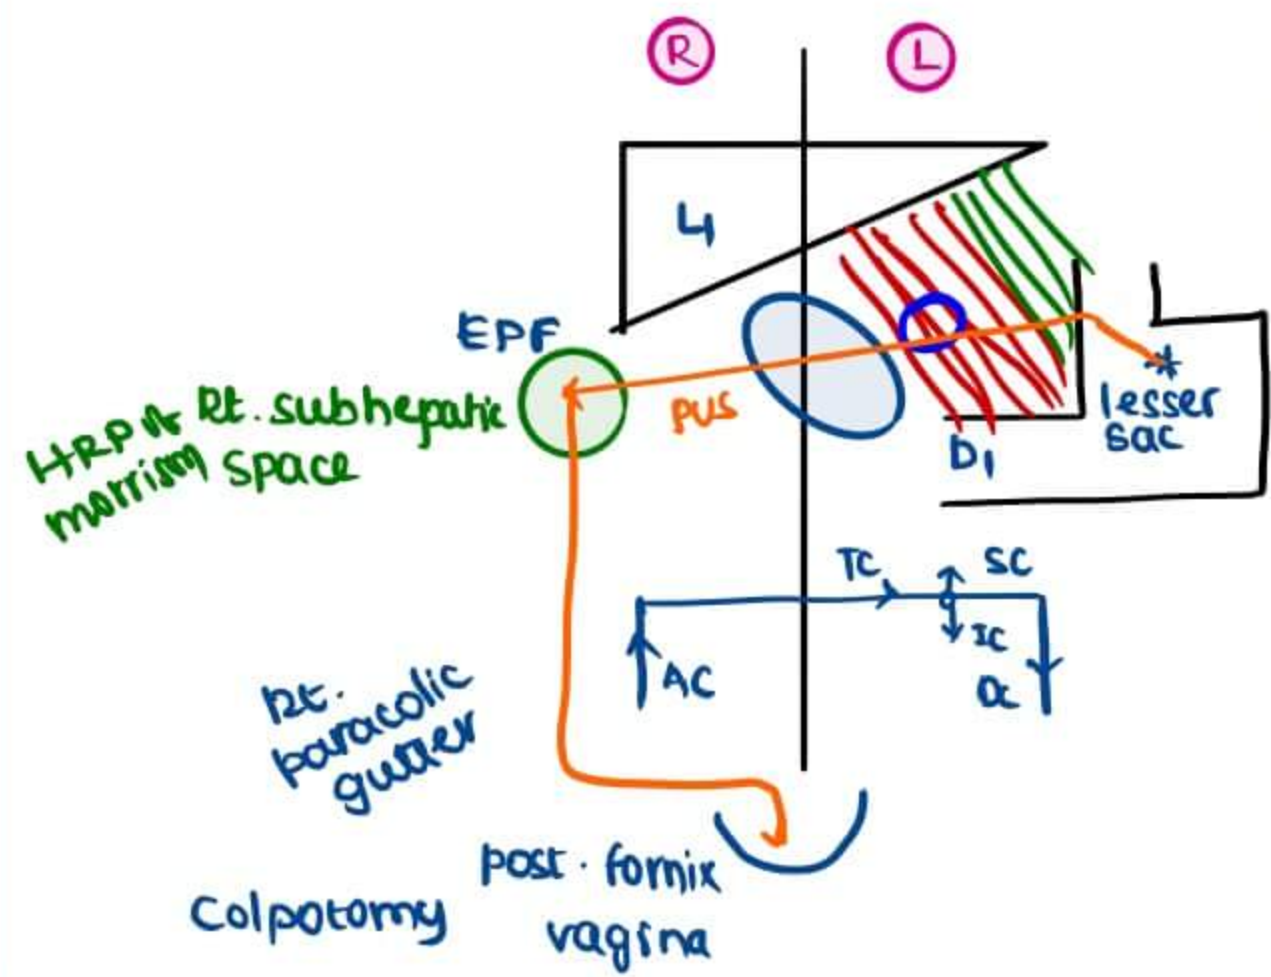 R
L
4
EPF
HRP or Rt. subhepatic
morrison space
PUS
lesser
sac
D1
TC
SC
IC
AC
DC
Rt.
paracolic
gutter
post. fornix
Colpotomy
vagina